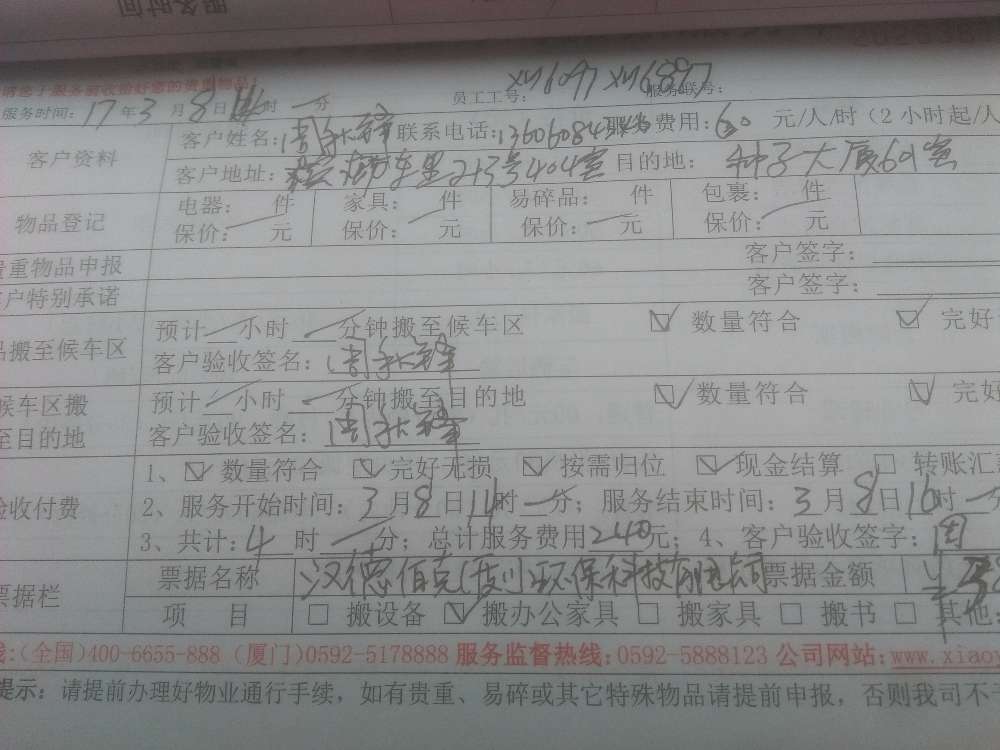 服务时间
请您于服务前收拾好您的贵重物品!
服务时间: 17年3月8日14时一分 员工工号: XM6097 XM6897 服务联号:
客户资料 客户姓名: 周秋锋 联系电话: 服务费用: 60 元/人/时（2小时起/人
客户地址: 213号404室 目的地: 种子大厦601室
物品登记 电器: 件 家具: 件 易碎品: 件 包裹: 件
保价: 元 保价: 元 保价: 元 保价: 元
贵重物品申报 客户签字:
客户特别承诺 客户签字:
品搬至候车区 预计一小时一分钟搬至候车区 ☑ 数量符合 ☑ 完好
客户验收签名: 周秋锋
候车区搬至目的地 预计一小时一分钟搬至目的地 ☑ 数量符合 ☑ 完好
客户验收签名: 周秋锋
验收付费 1、☑ 数量符合 ☑ 完好无损 ☑ 按需归位 ☑ 现金结算 □ 转账汇
2、服务开始时间: 3月8日14时一分; 服务结束时间: 3月8日16时一分
3、共计: 4时一分; 总计服务费用240元; 4、客户验收签字: 周
票据栏 票据名称 汉德佰克(厦门)环保科技有限公司 票据金额
项 目 □ 搬设备 ☑ 搬办公家具 □ 搬家具 □ 搬书 □ 其他
线:(全国)400-6655-888 (厦门)0592-5178888 服务监督热线:0592-5888123 公司网站:www.xiao
提示: 请提前办理好物业通行手续，如有贵重、易碎或其它特殊物品请提前申报，否则我司不